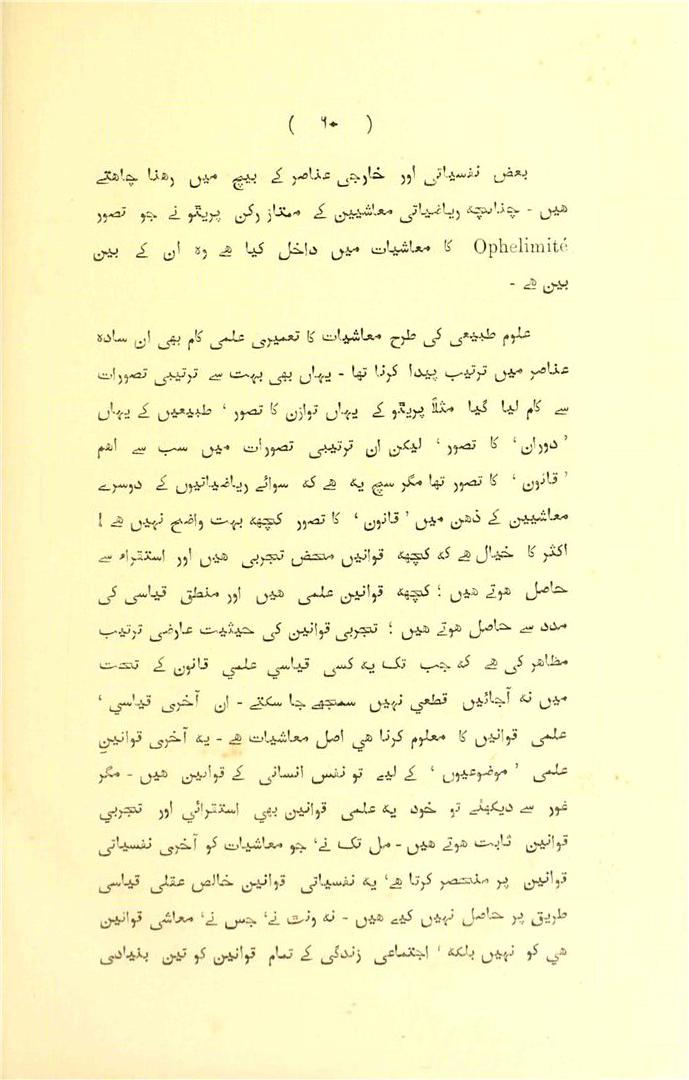 ( ٦٠ )
بعض نفسیاتی اور خارجی عناصر کے بیچ میں رهنا چاهتے
هیں - چنانچه ریاضیاتی معاشیین کے ممتاز رکن پریٹو نے جو تصور
Ophelimité کا معاشیات میں داخل کیا هے وه ان کے بین
بین هے -
علوم طبیعی کی طرح معاشیات کا تعمیری علمی کام بھی ان ساده
عناصر میں ترتیب پیدا کرنا تھا - یہاں بھی بہت سے ترتیبی تصورات
سے کام لیا گیا مثلاً پریٹو کے یہاں توازن کا تصور ' طبیعیں کے یہاں
' دوران ' کا تصور ' لیکن ان ترتیبی تصورات میں سب سے اهم
' قانون ' کا تصور تھا مگر سچ یه هے که سوائے ریاضیاتیوں کے دوسرے
معاشیین کے ذهن میں ' قانون ' کا تصور کچھه بہت واضح نہیں هے !
اکثر کا خیال هے که کچھه قوانیں محض تجربی هیں اور استقراء سے
حاصل هوتے هیں ؛ کچھه قوانین علمی هیں اور منطق قیاسی کی
مدد سے حاصل هوتے هیں ؛ تجربی قوانین کی حیثیت عارضی ترتیب
مظاهر کی هے که جب تک یه کسی قیاسي علمي قانون کے تحت
میں نه آجائیں قطعي نہیں سمجھے جا سکتے - ان آخری قیاسي '
علمی قوانیں کا معلوم کرنا هي اصل معاشیات هے - یه آخری قوانینِ
علمی ' موضوعیوں ' کے لیے تو نفس انسانی کے قوانین هیں - مگر
غور سے دیکھئے تو خود یه علمی قوانین بھی استقرائي اور تجربي
قوانین ثابت هوتے هیں - مل تک نے ' جو معاشیات کو آخری نفسیاتی
قوانین پر منحصر کرتا هے ' یه نفسیاتی قوانین خالص عقلی قیاسی
طریق پر حاصل نہیں کیے هیں - نه ونت نے ' جس نے ' معاشی قوانین
هي کو نہیں بلکه ' اجتماعی زندگی کے تمام قوانین کو تین بنیادی